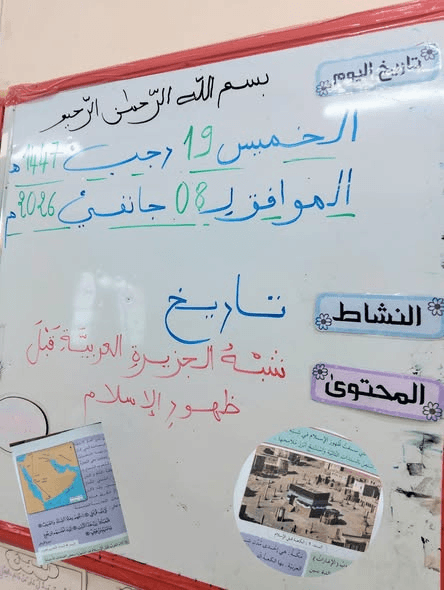 تاريخ اليوم
بسم الله الرّحمٰن الرّحيم
الخميس 19 رجب 1447 هـ
الموافق لـ 08 جانفي 2026 م
النشاط
تاريخ
المحتوى
شبْهُ الجزيرةِ العربيَّةِ قَبْلَ
ظهورِ الإسلام